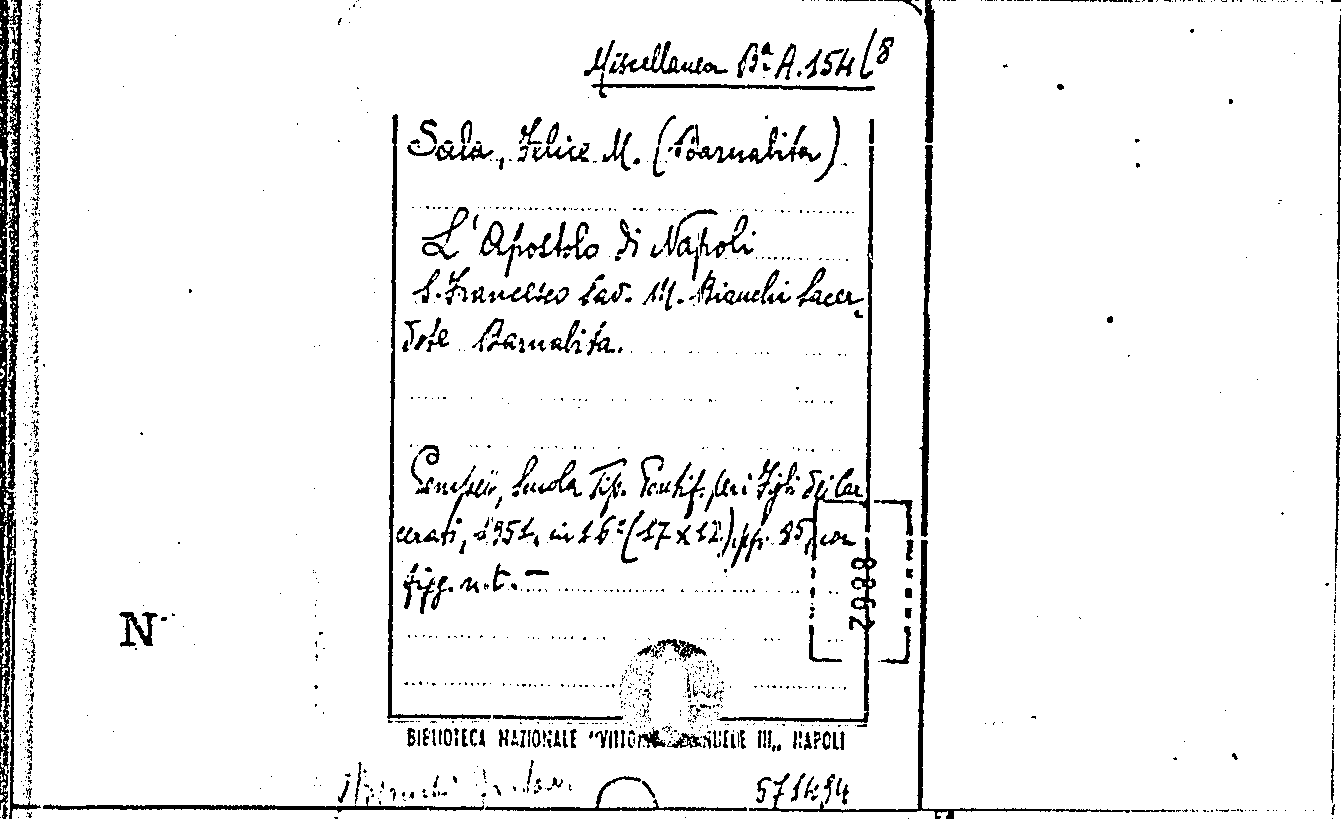 Miscellanea Bª A. 154(8
Sala, Felice M. (Barnabita)
L'Apostolo di Napoli
S. Francesco Sav. M. Bianchi Sacer-
dote Barnabita.
Pompei, Scuola Tip. Pontif. per i Figli dei Car
cerati, 1951. in 16º (17 x 12) pp. 85, con
figg. n. t. —
2988
N
BIBLIOTECA NAZIONALE "VITTORIO EMANUELE III„ NAPOLI
571494